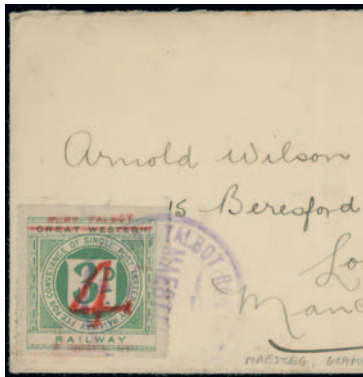 Arnold Wilson
15 Beresford
Lo
Manc
PORT TALBOT
GREAT WESTERN
RAILWAY FEE FOR CONVEYANCE OF SINGLE POST LETTERS BY
3D
4
RAILWAY
TALBOT R
MAEST
MAESTEG, GLAM